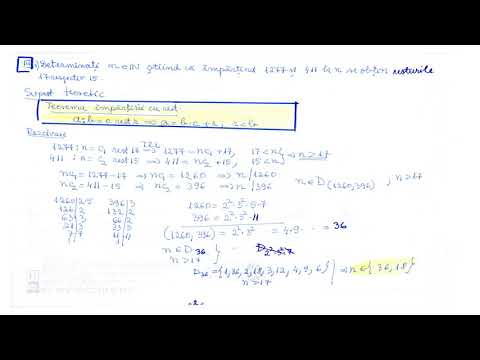 Determinați n∈ℕ știind că împărțind 1277 și 411 la n se obțin resturile
17 respectiv 15.
Suport teoretic
Teorema împărțirii cu rest
a:b = c rest r ⇒ a = b·c + r, r<b
Rezolvare
1277 : n = c₁ rest 17 ⇒ 1277 = nc₁ + 17, 17 < n } ⇒ n > 17
411 : n = c₂ rest 15 ⇒ 411 = nc₂ + 15, 15 < n
nc₁ = 1277 - 17 ⇒ nc₁ = 1260 ⇒ n / 1260
nc₂ = 411 - 15 ⇒ nc₂ = 396 ⇒ n / 396 n∈D(1260,396) , n>17
1260 | 2·5 396 | 3 1260 = 2²·3²·5·7
126 | 2 132 | 2 396 = 2²·3²·11
63 | 3 66 | 2 (1260, 396) = 2²·3² = 4·9 = 36
21 | 3 33 | 3 n∈D 36 }
7 | 7 11 | 11 n > 17
1 1 D₃₆ = {1, 36, 2, 18, 3, 12, 4, 9, 6} | ⇒ n∈{36, 18}
n>17
-2-